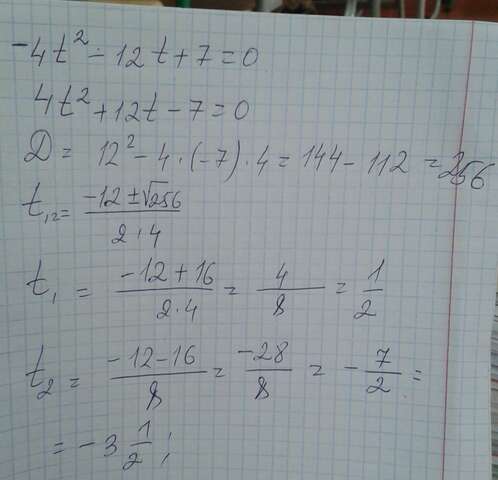 -4t² - 12t + 7 = 0
4t² + 12t - 7 = 0
D = 12² - 4 · (-7) · 4 = 144 - 112 = 256
t₁,₂ = (-12 ± √256)/(2 · 4)
t₁ = (-12 + 16)/(2 · 4) = 4/8 = 1/2
t₂ = (-12 - 16)/8 = -28/8 = -7/2 =
= -3 1/2;